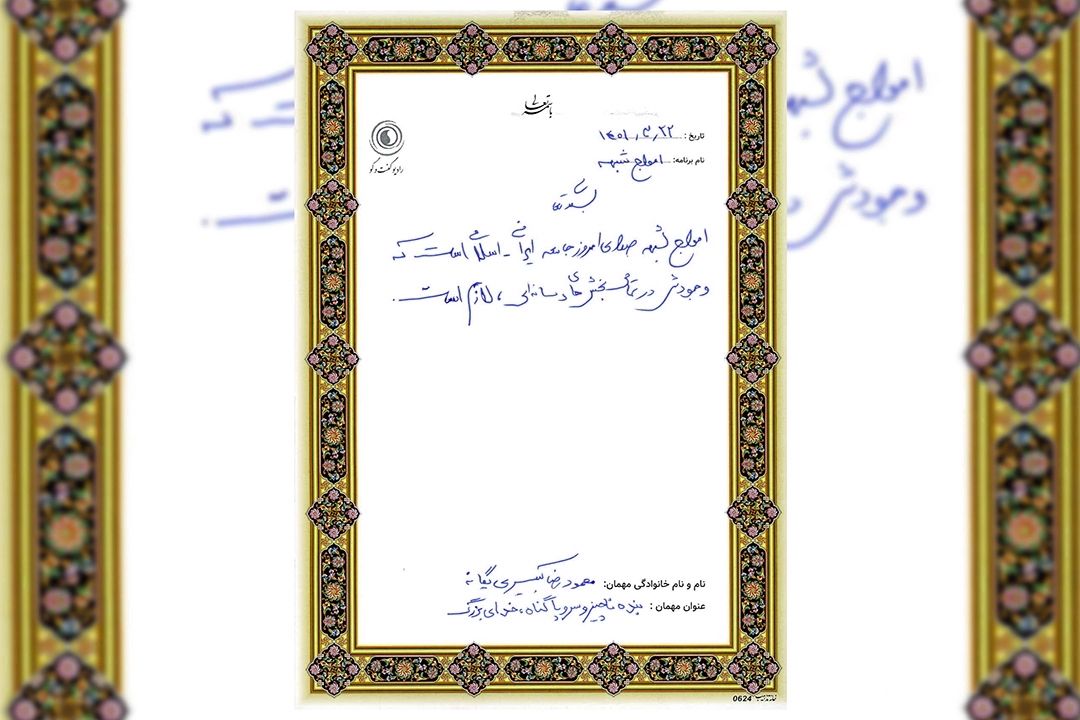 باسمه تعالی
رادیو گفت و گو
تاریخ: ۱۴۰۱٫۳٫۲۲
نام برنامه: امواج شبهه
بسمه تعالی
امواج شبهه صدای امروز جامعه ایرانی - اسلامی است که
وجودش در تمامی بخش های رسانه‌ای، لازم است.
نام و نام خانوادگی مهمان: محمود رضا یگانه
عنوان مهمان: بنده ناچیز و سروپا گناه، خدای بزرگ
0624